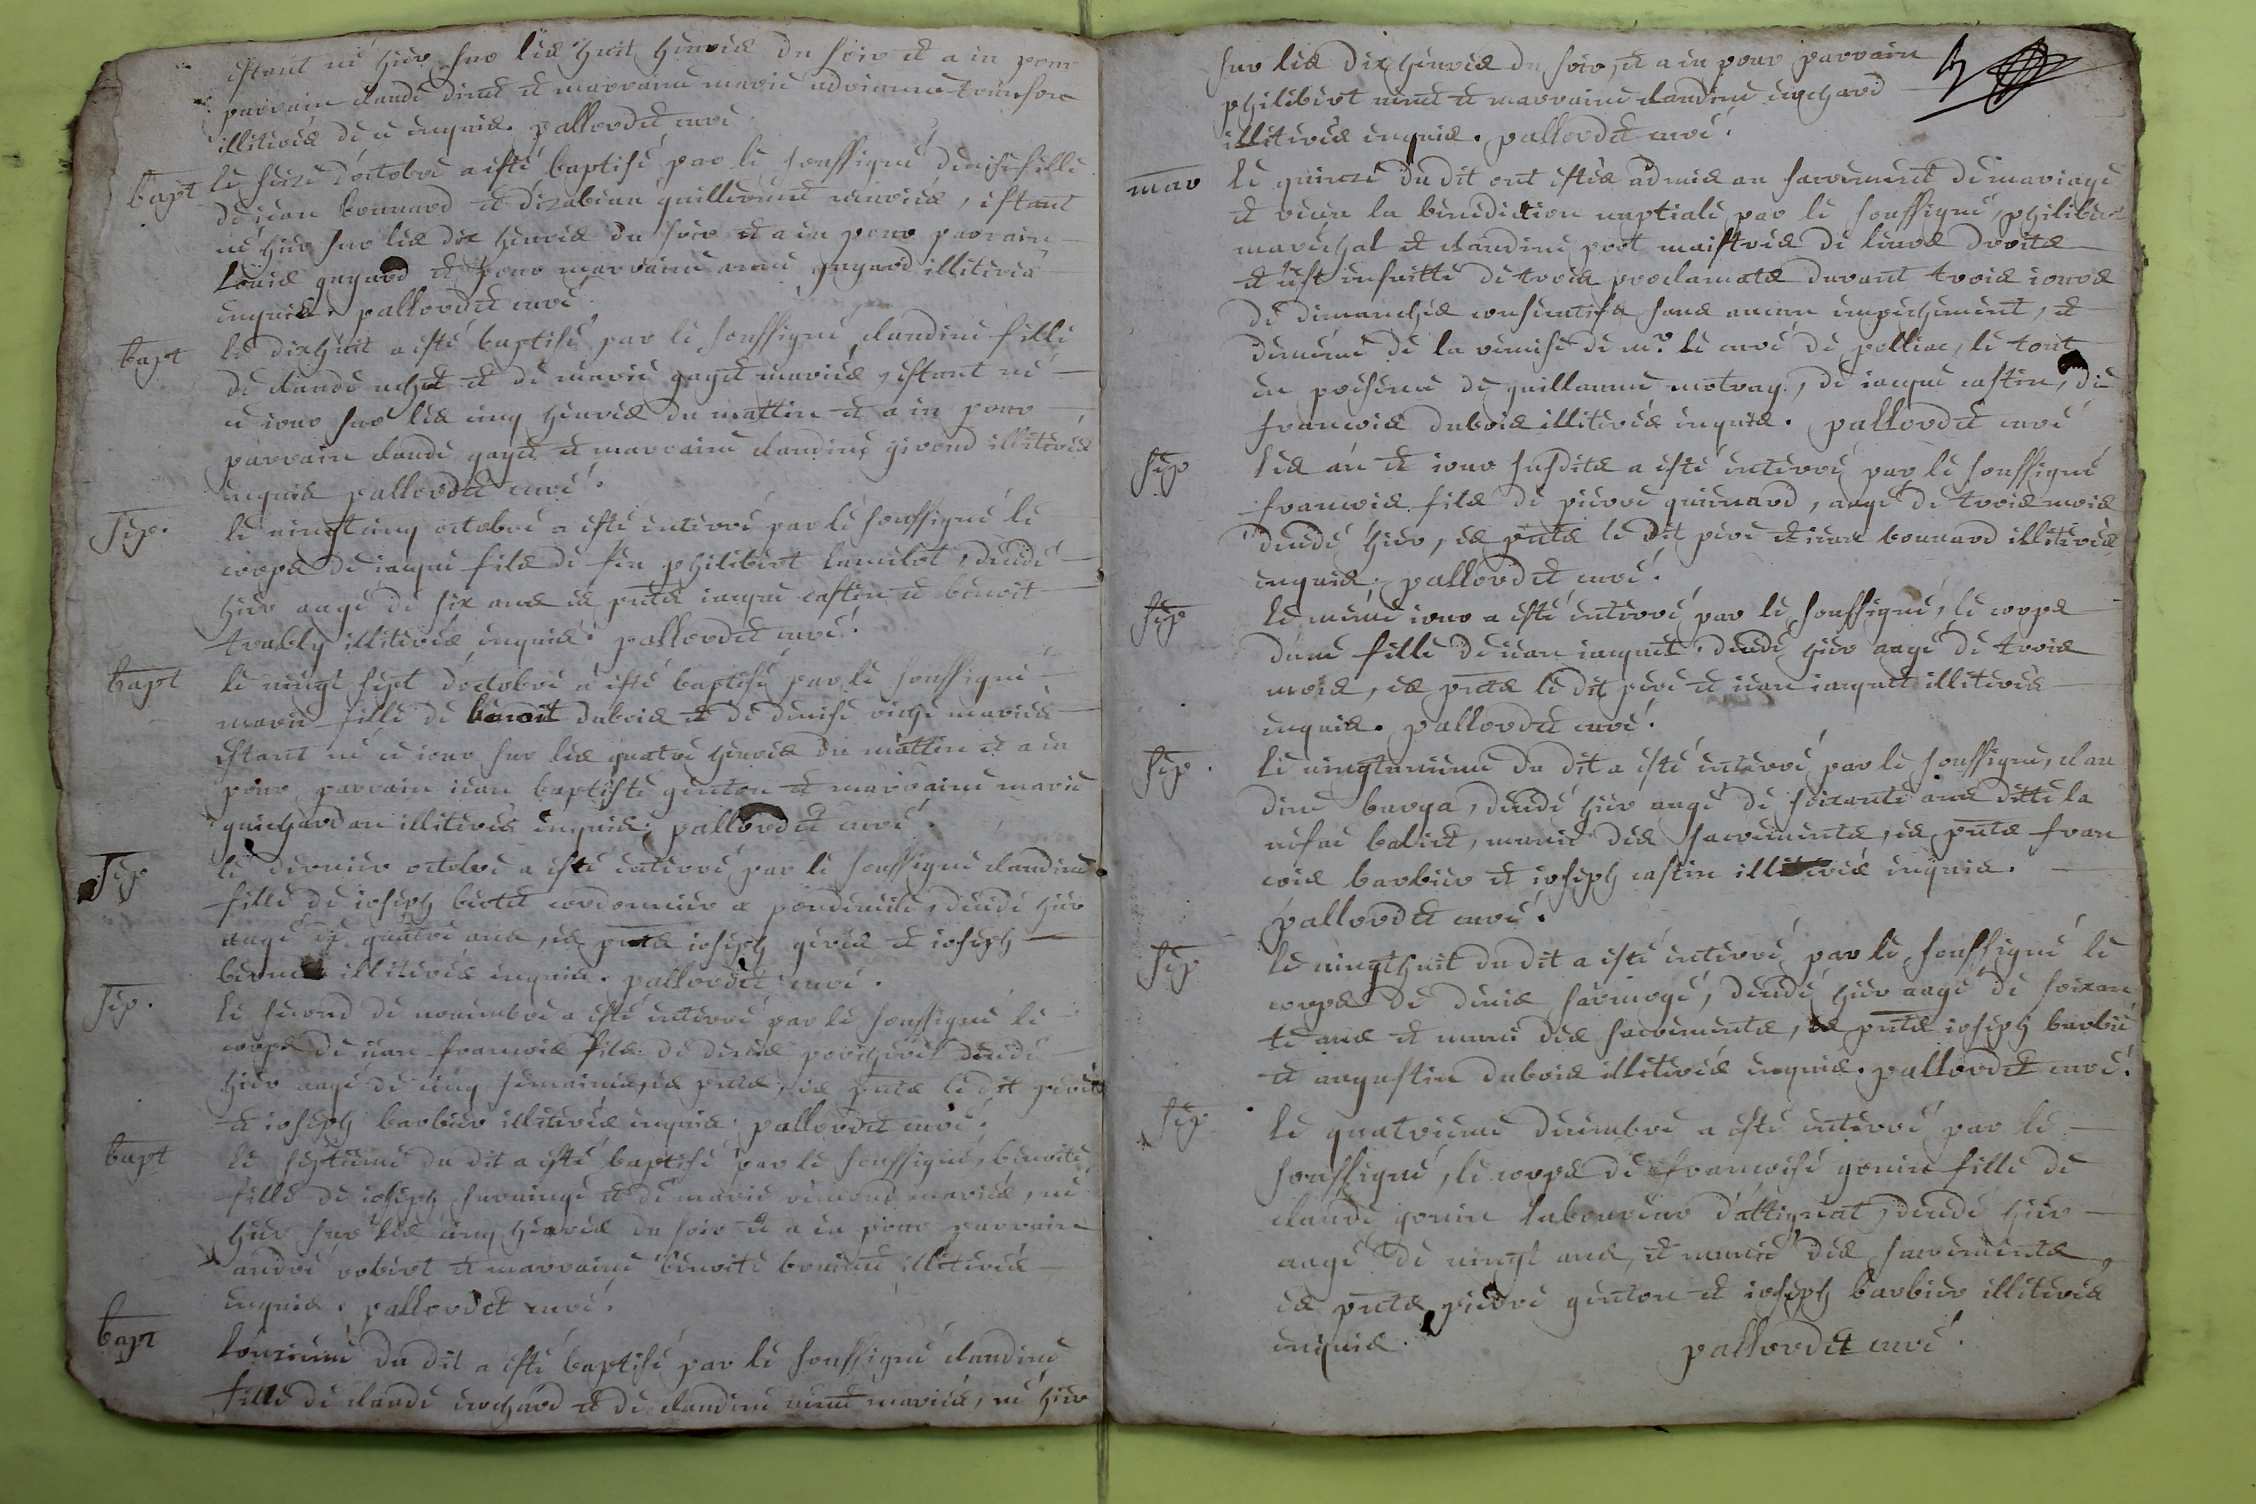 estant né hier sur les huit heures du soir et a eu pour
parrain claude et marraine marie adrianne
illiterés de ce enquis. pallordet curé
bapt le seize d'octobre a esté baptisé par le soussigné denise fille
de iean bonnard et guillermet mariés, estant
né hier sur les dix heures du soir et a eu pour parrain
Loüis guyard et pour marraine anne guyard illiterés
enquis. pallordet curé
bapt le dixhuit a esté baptisé par le soussigné, claudine fille
de claude uchet et de marie gayet mariés, estant né
ce iour sur les cinq heures du mattin et a eu pour
parrain claude gayet et marraine claudine girend illiterés
enquis pallordet curé.
sep. le vingtcinq octobre a esté enterré par le soussigné le
corps de iaque fils de feu philibert lamelot, décédé
hier aagé de six ans es pnts iaque castin et benoit
trably illiterés enquis. pallordet curé.
bapt le vingt sept d'octobre a esté baptisé par le soussigné
marie fille de benoit dubois et de denise mariés
estant né ce iour sur les quatre heures du mattin et a eu
pour parrain iean baptiste genton et marraine marie
guichardan illiterés enquis. pallordet curé.
sep le dernier octobre a esté enterré par le soussigné claudine
fille de ioseph cordonnier a décédé hier
aagé de quatre ans, es pnts ioseph et ioseph
illiterés enquis. pallordet curé.
sep. le second de novembre a esté enterré par le soussigné le
corps de iean francois fils de denis porcheret décédé
hier aagé de cinq semaines, es pnts, es pnts le dit père
et ioseph barbier illiterés enquis. pallordet curé.
bapt le septieme du dit a esté baptisé par le soussigné, benoite
fille de ioseph et de marie mariés, né
hier sur les cinq heures du soir et a eu pour parrain
andré robert et marraine benoite illiterés
enquis. pallordet curé.
bapt Lonzieme du dit a esté baptisé par le soussigné claudine
fille de claude et de claudine mariés, né hier
sur les dix heures du soir, et a eu pour parrain
philibert et marraine claudine
illiterés enquis. pallordet curé.
mar le quinze du dit ont estés admis au sacrement de mariage
et receu la benediction nuptiale par le soussigné, philibert
marechal et claudine prot maistres de leurs droits
et cest ensuitte de trois proclamats durant trois iours
de dimanches consecutifs sans aucun empechement, et
de la remise de mr. le curé de pollias, le tout
en presence de guillaume motray, de iaque castin, de
francois dubois illiterés enquis. pallordet curé
sep les an et iour susdits a esté enterré par le soussigné
francois fils de pierre guionard, aagé de trois mois
décédé hier, es pnts le dit père et iean bonnard illiterés
enquis. pallordet curé.
sep le même iour a esté enterré par le soussigné, le corps
d'une fille de iean iaquet. décédé hier aagé de trois
mois, es pnts le dit père et iean iaquet illiterés
enquis. pallordet curé.
sep. le du dit a esté enterré par le soussigné, clau
dine barya, décédé hier aagé de soixante ans ditte la
munie des sacrements, es pnts fran
cois barbier et ioseph castin illiterés enquis.
pallordet curé.
sep le vingthuit du dit a esté enterré par le soussigné le
corps de denis décédé hier aagé de soixan
te ans et muni des sacrements, es pnts ioseph barbié
et augustin dubois illiterés enquis. pallordet curé.
sep le quatrieme decembre a esté enterré par le
soussigné, le corps de francoise gonin fille de
claude gonin laboureur d'attignat, décédé hier
aagé de vingt ans, et munie des sacrements,
es pnts pierre genton et ioseph barbier illiterés
enquis. pallordet curé.